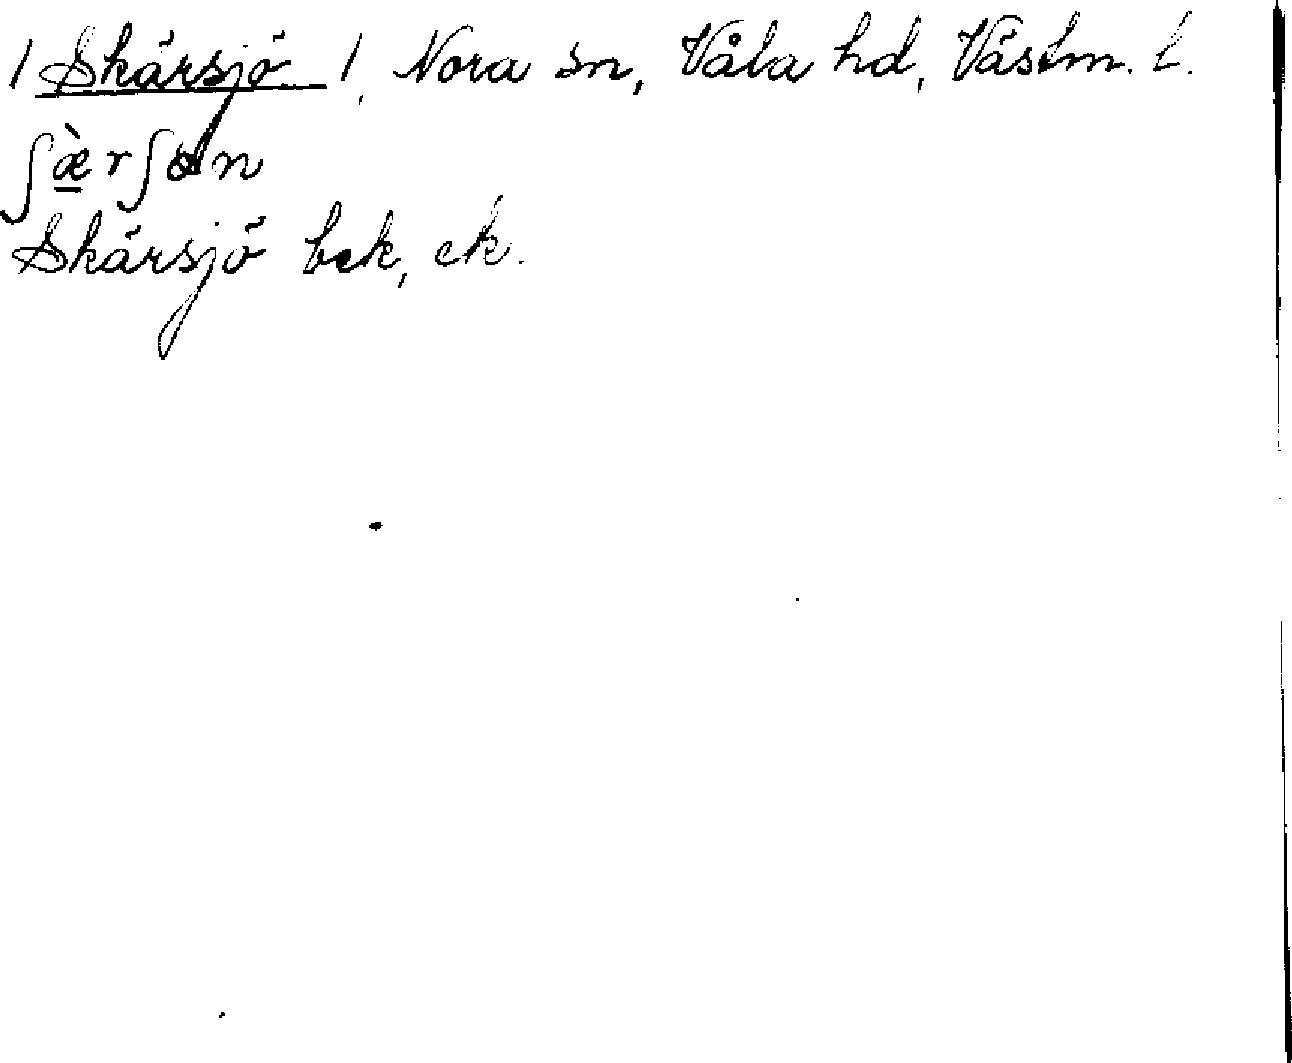 / Skärsjö /, Nora sn, Våla hd, Västm. l.
ʃæ̀rʃøn
Skärsjö bek, ek.